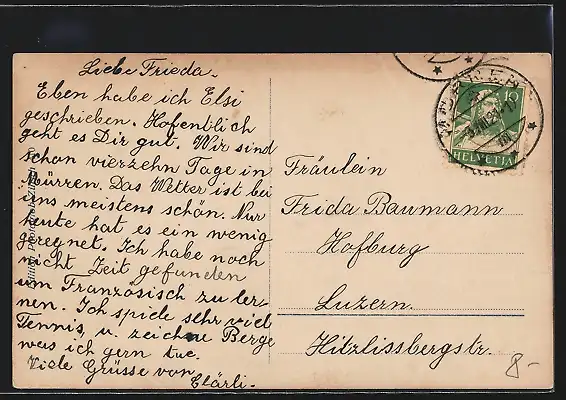 Liebe Frieda.
Eben habe ich Elsi
geschrieben. Hofentlich
geht es Dir gut. Wir sind
schon vierzehn Tage in
Mürren. Das Wetter ist bei
uns meistens schön. Nur
heute hat es ein wenig
geregnet. Ich habe noch
nicht Zeit gefunden
um Französisch zu ler-
nen. Ich spiele sehr viel
Tennis, u. zeichne Berge
was ich gern tue.
Viele Grüsse von
Clärli.
10
HELVETIA
Fräulein
Frida Baumann
Hofburg
Luzern.
Hitzlissbergstr.
8-